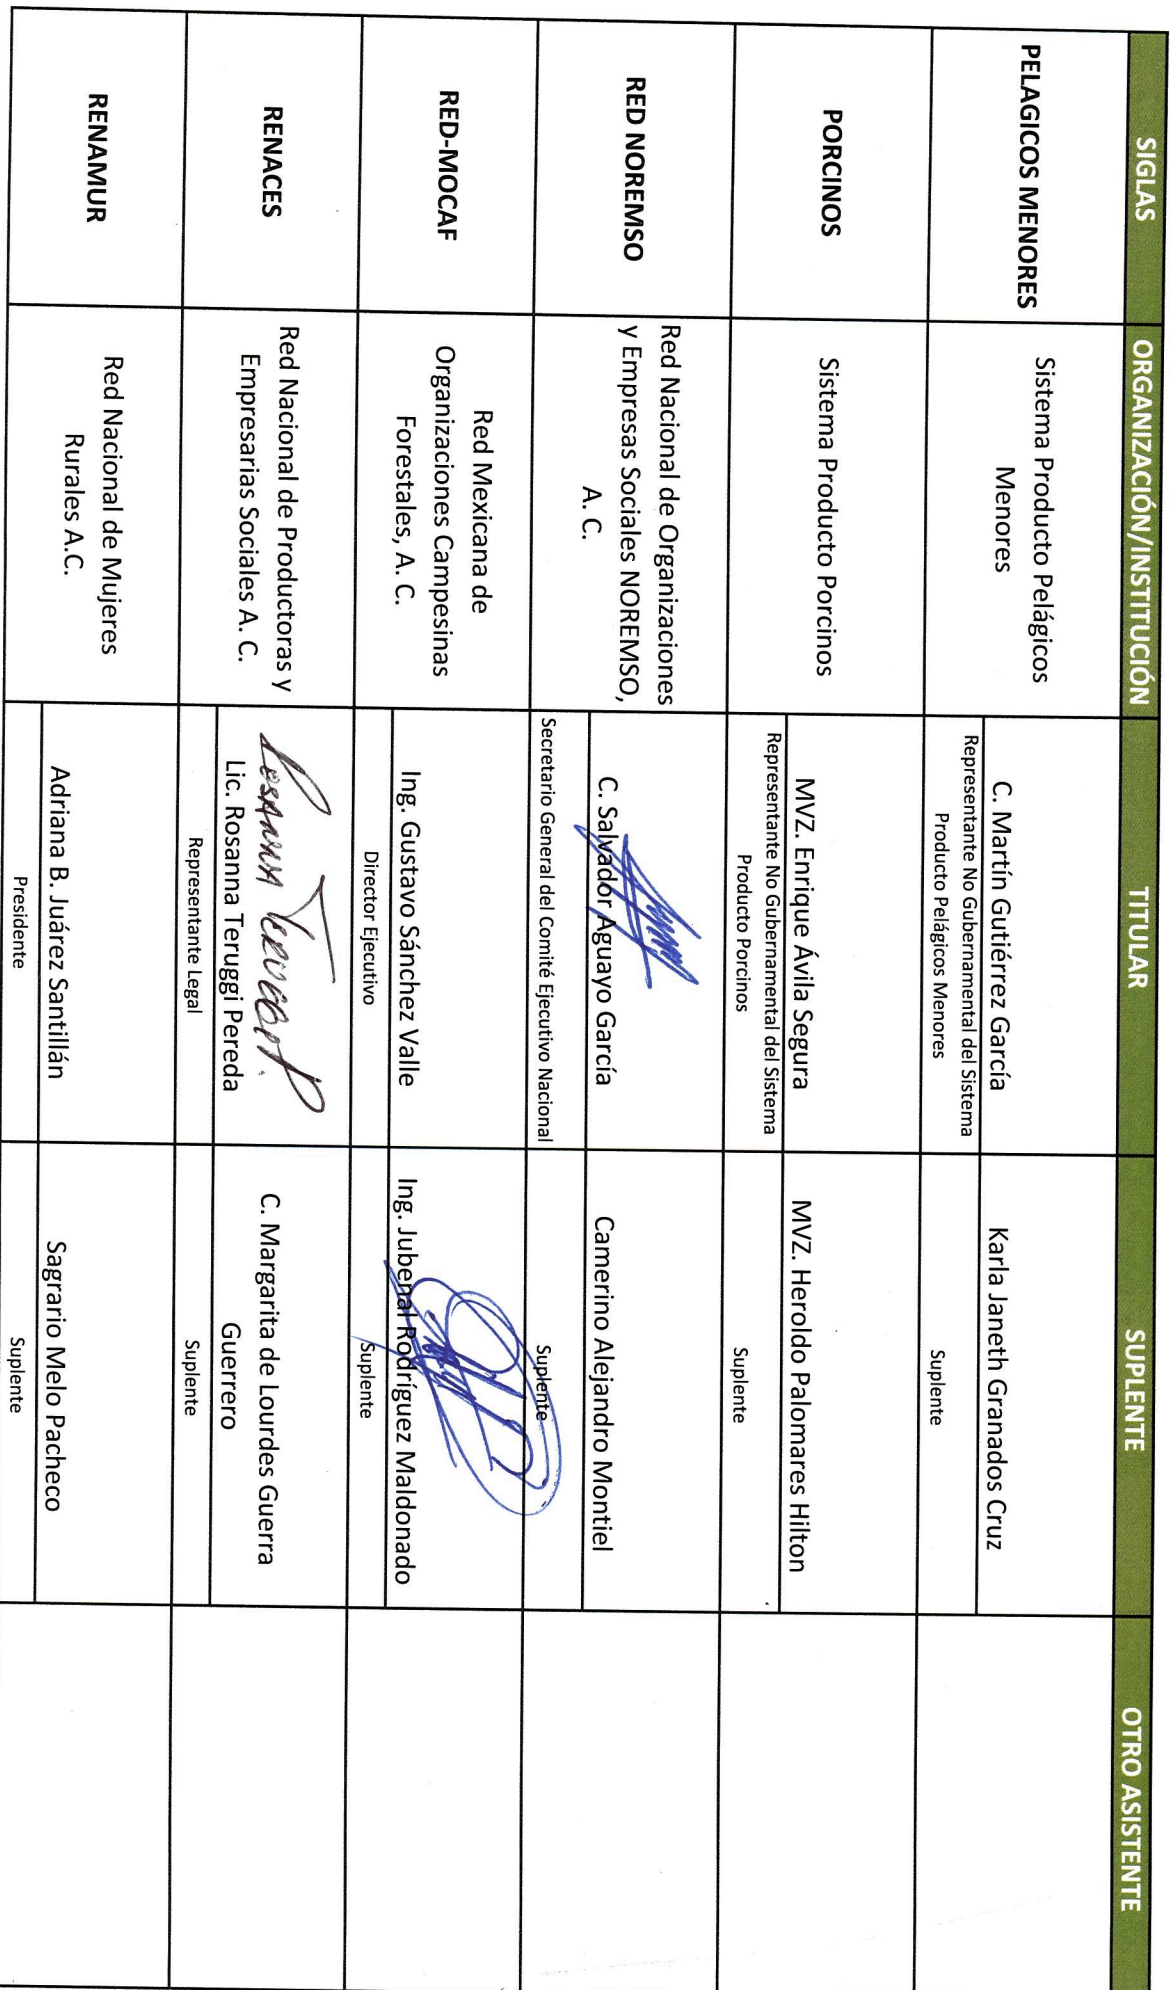 SIGLAS
ORGANIZACIÓN/INSTITUCIÓN
TITULAR
SUPLENTE
OTRO ASISTENTE
PELAGICOS MENORES
Sistema Producto Pelágicos
Menores
C. Martín Gutiérrez García
Representante No Gubernamental del Sistema
Producto Pelágicos Menores
Karla Janeth Granados Cruz
Suplente
PORCINOS
Sistema Producto Porcinos
MVZ. Enrique Ávila Segura
Representante No Gubernamental del Sistema
Producto Porcinos
MVZ. Heroldo Palomares Hilton
Suplente
RED NOREMSO
Red Nacional de Organizaciones
y Empresas Sociales NOREMSO,
A. C.
C. Salvador Aguayo García
Secretario General del Comité Ejecutivo Nacional
Camerino Alejandro Montiel
Suplente
RED-MOCAF
Red Mexicana de
Organizaciones Campesinas
Forestales, A. C.
Ing. Gustavo Sánchez Valle
Director Ejecutivo
Ing. Jubenal Rodríguez Maldonado
Suplente
RENACES
Red Nacional de Productoras y
Empresarias Sociales A. C.
Lic. Rosanna Teruggi Pereda
Representante Legal
C. Margarita de Lourdes Guerra
Guerrero
Suplente
RENAMUR
Red Nacional de Mujeres
Rurales A.C.
Adriana B. Juárez Santillán
Presidente
Sagrario Melo Pacheco
Suplente